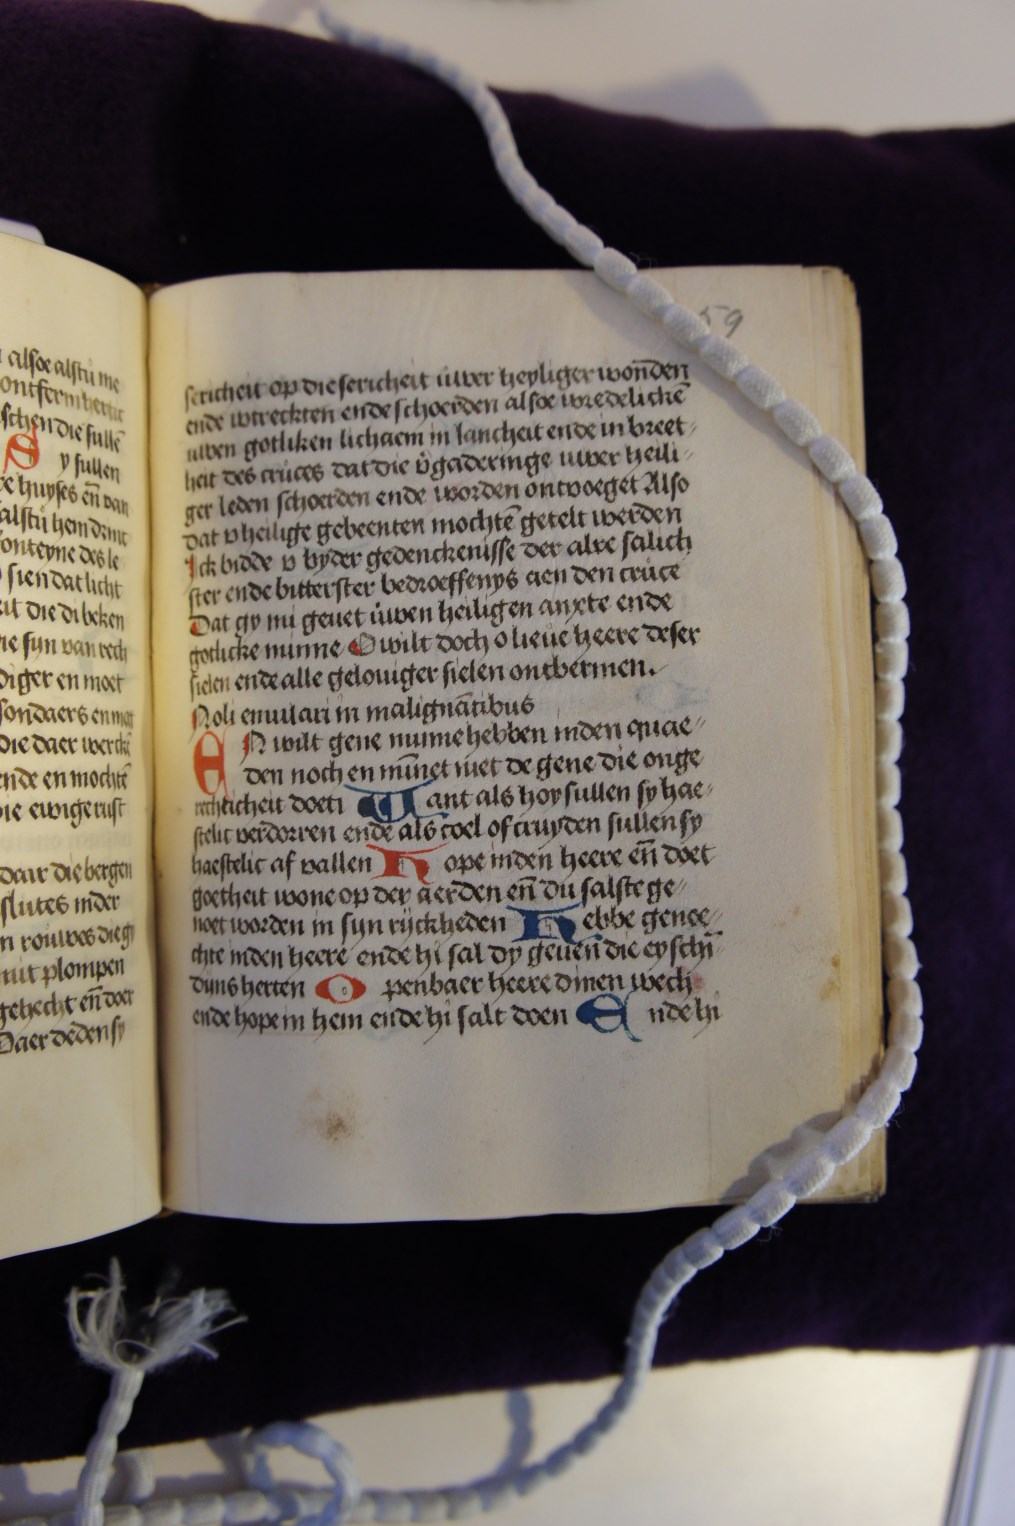 alsoe alstu me
ontfermhertic
schen die sullē
Sy sullen
huyses eñ van
alstu hem drinc
fonteyne des le
sien dat licht
die di beken
die syn van rech
diger en moet
sondaers en moe
die daer wercke
ende en mochtē
die ewige rust
daar die bergen
slutes inder
n rouwes die gi
mit plompen
gehecht eñ doer
Daer deden sy
59
sericheit op die sericheit uwer heyliger wonden
ende wtreckten ende schoerden alsoe wredelickē
uwen gotliken lichaem in lancheit ende in breet-
heit des cruces dat die v̄gaderinge uwer heili-
ger leden schoerden ende worden ontvoeget Also
dat v heilige gebeenten mochtē getelt werden
Ick bidde v byder gedenckenisse der alre salich
ster ende bitterster bedroeffenys aen den cruce
Dat gy mi gevet uwen heiligen anxte ende
gotlicke minne O wilt doch o lieve heere deser
sielen ende alle gelouiger sielen ontbermen.
Noli emulari in malignātibus
EN wilt gene nume hebben inden quae-
den noch en mīnet niet de gene die onge
rechticheit doen Want als hoy sullen sy hae-
stelic verdorren ende als coel of cruyden sullen sy
haestelic af vallen Hope inden heere eñ doet
goetheit wone op der aerden eñ du salste ge-
noet worden in syn ryckheden Hebbe genoe-
chte inden heere ende hi sal dy geuen die eyschn̄
dijns herten Openbaer heere dinen wech
ende hope in hem ende hi salt doen Ende hi